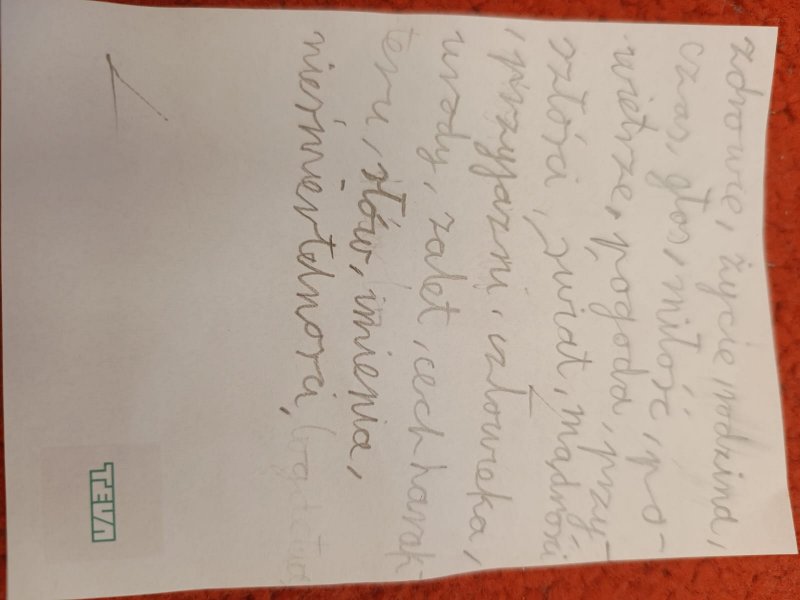 zdrowie, życie, rodzina,
czas, głos, miłość, po-
wietrze, pogoda, przy-
szłości, świat, mądrości
, przyjaźni, człowieka,
urody, zalet, cech charak-
teru, słów, imienia,
nieśmiertelności,
TEVA